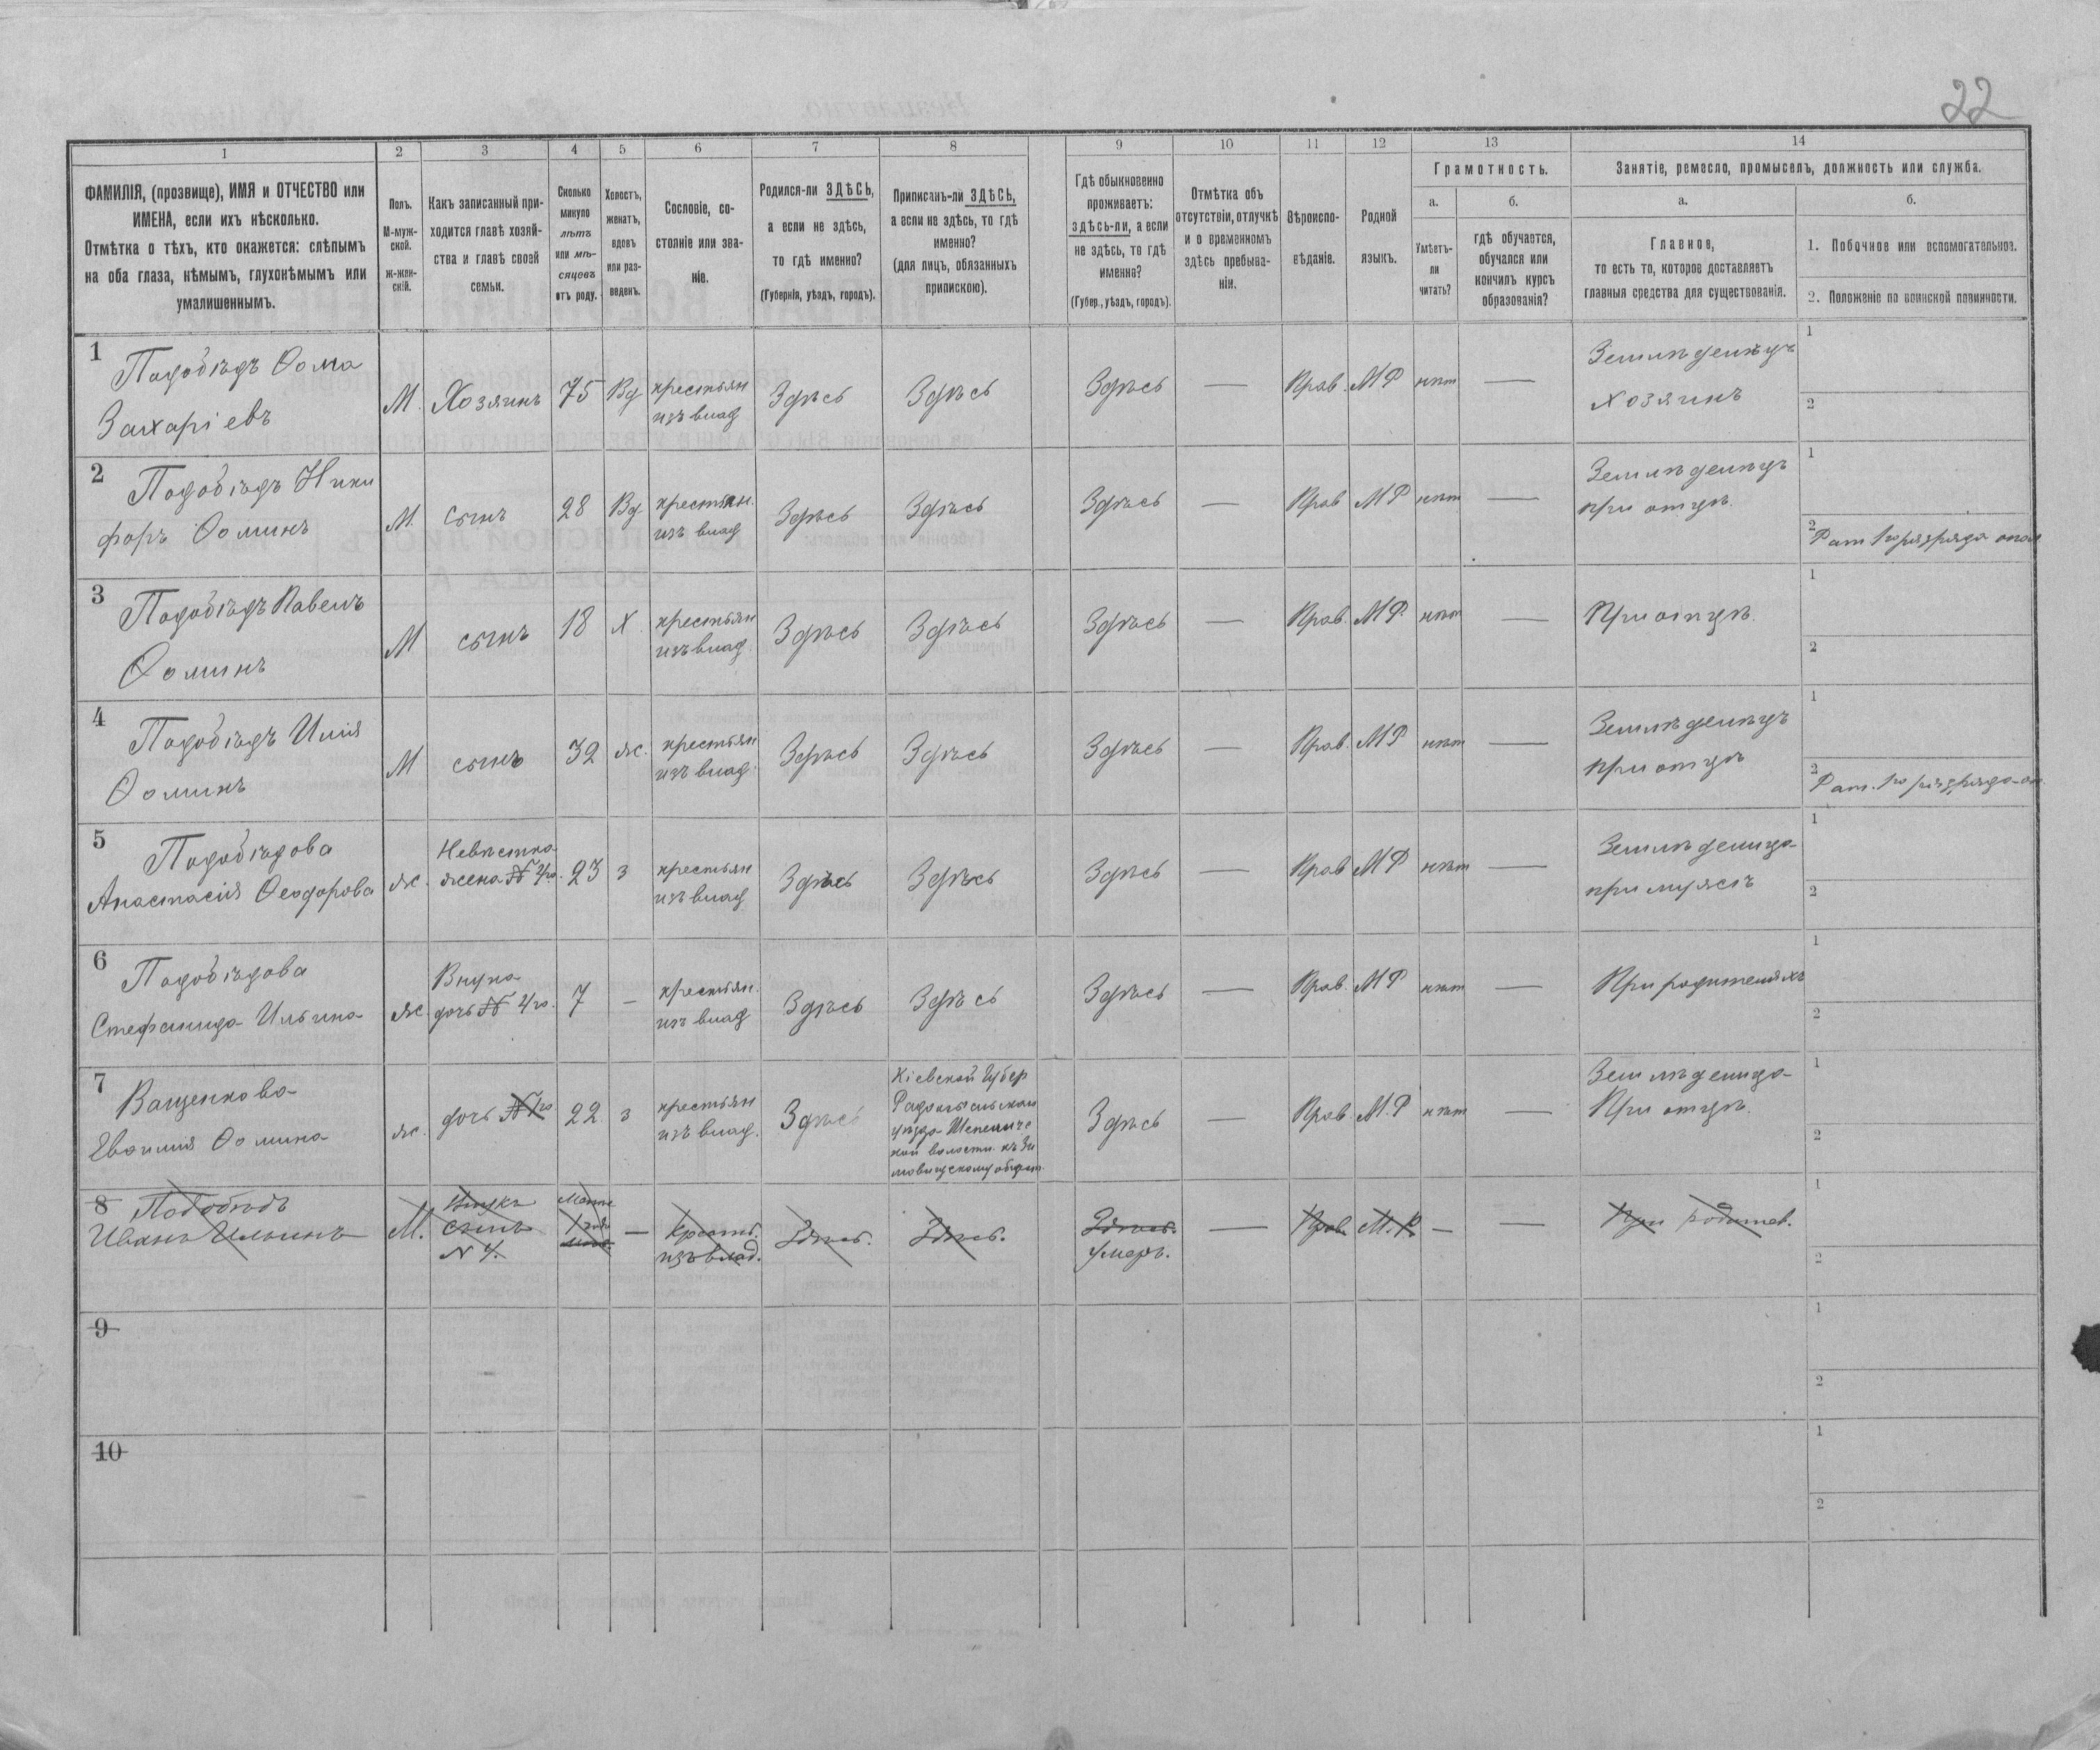 22
1 2 3 4 5 6 7 8 9 10 11 12 13 14
ФАМИЛІЯ, (прозвище), ИМЯ и ОТЧЕСТВО или
ИМЕНА, если ихъ нѣсколько.
Отмѣтка о тѣхъ, кто окажется: слѣпымъ
на оба глаза, нѣмымъ, глухонѣмымъ или
умалишеннымъ.
Полъ.
М-муж-
ской.
Ж-жен-
скій.
Какъ записанный при-
ходится главѣ хозяй-
ства и главѣ своей
семьи.
Сколько
минуло
лѣтъ
или мѣ-
сяцевъ
отъ роду.
Холостъ,
женатъ,
вдовъ
или раз-
веденъ.
Сословіе, со-
стояніе или зва-
ніе.
Родился-ли ЗДѢСЬ,
а если не здѣсь,
то гдѣ именно?
(Губернія, уѣздъ, городъ).
Приписанъ-ли ЗДѢСЬ,
а если не здѣсь, то гдѣ
именно?
(для лицъ, обязанныхъ
припискою).
Гдѣ обыкновенно
проживаетъ:
здѣсь-ли, а если
не здѣсь, то гдѣ
именно?
(Губер., уѣздъ, городъ).
Отмѣтка объ
отсутствіи, отлучкѣ
и о временномъ
здѣсь пребыва-
ніи.
Вѣроиспо-
вѣданіе.
Родной
языкъ.
Грамотность.
а.
Умѣетъ-
ли
читать?
б.
гдѣ обучается,
обучался или
кончилъ курсъ
образованія?
Занятіе, ремесло, промыселъ, должность или служба.
а.
Главное,
то есть то, которое доставляетъ
главныя средства для существованія.
б.
1. Побочное или вспомогательное.
2. Положеніе по воинской повинности.
1 Подобѣдъ Ѳома
Захаріевъ
М. Хозяинъ 75 Вд
крестьян
изъ влад
Здѣсь Здѣсь Здѣсь — Прав. МР нѣт —
Земледѣлецъ
хозяинъ
1
2
2 Подобѣдъ Ники
форъ Ѳоминъ
М. сынъ 28 Вд
крестьян.
изъ влад
Здѣсь Здѣсь Здѣсь — Прав МР нѣт —
Земледѣлецъ
при отцѣ.
1
2 Рат 1го разряда опол
3 Подобѣдъ Павелъ
Ѳоминъ
М сынъ 18 Х
крестьян
изъ влад
Здѣсь Здѣсь Здѣсь — Прав. МР. нѣт —
При отцѣ.
1
2
4 Подобѣдъ Илія
Ѳоминъ
М сынъ 32 ж.
крестьян
изъ влад
Здѣсь Здѣсь Здѣсь — Прав. МР нѣт —
Земледѣлецъ
при отцѣ
1
2 Рат. 1го разряда оп
5 Подобѣдова
Анастасія Ѳеодорова
ж.
Невѣстка
жена № 4го.
23 з
крестьян
изъ влад
Здѣсь Здѣсь Здѣсь — Прав МР нѣт —
Земледѣлица
при мужѣ
1
2
6 Подобѣдова
Стефанида Ильина
ж
Внука
дочь № 4го.
7 —
крестьян.
изъ влад
Здѣсь Здѣсь Здѣсь — Прав. МР нѣт —
При родителяхъ
1
2
7 Ващенкова
Евѳимія Ѳомина
ж. дочь № 1го 22 з
крестьян
изъ влад.
Здѣсь
Кіевской Губер
Радомысльскаго
уѣзда Шепеличе
кой волости. къ Зи
мовищскому общест
Здѣсь — Прав. М.Р нѣт —
Земледѣлица
При отцѣ.
1
2
8 Подобѣдъ
Иванъ Ильинъ
М.
Внукъ
сынъ
N 4.
—
Крестья.
изъ влад.
Здѣсь. Здѣсь.
Здѣсь.
умеръ.
— Прав. М.Р. — —
При родител.
1
2
9
1
2
10
1
2